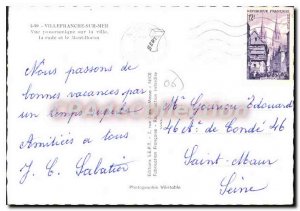 VILLEFRANCHE-SUR-MER
Vue panoramique sur la ville,
la rade et le Mont-Boron
REPUBLIQUE FRANÇAISE
12F
Nous passons de
bonnes vacances par
un temps
Amitiés à tous
J. C. Sabatier
Mr Gouvou Edouard
46 Ar de Condé 46
Saint-Maur
Seine
Photographie Véritable